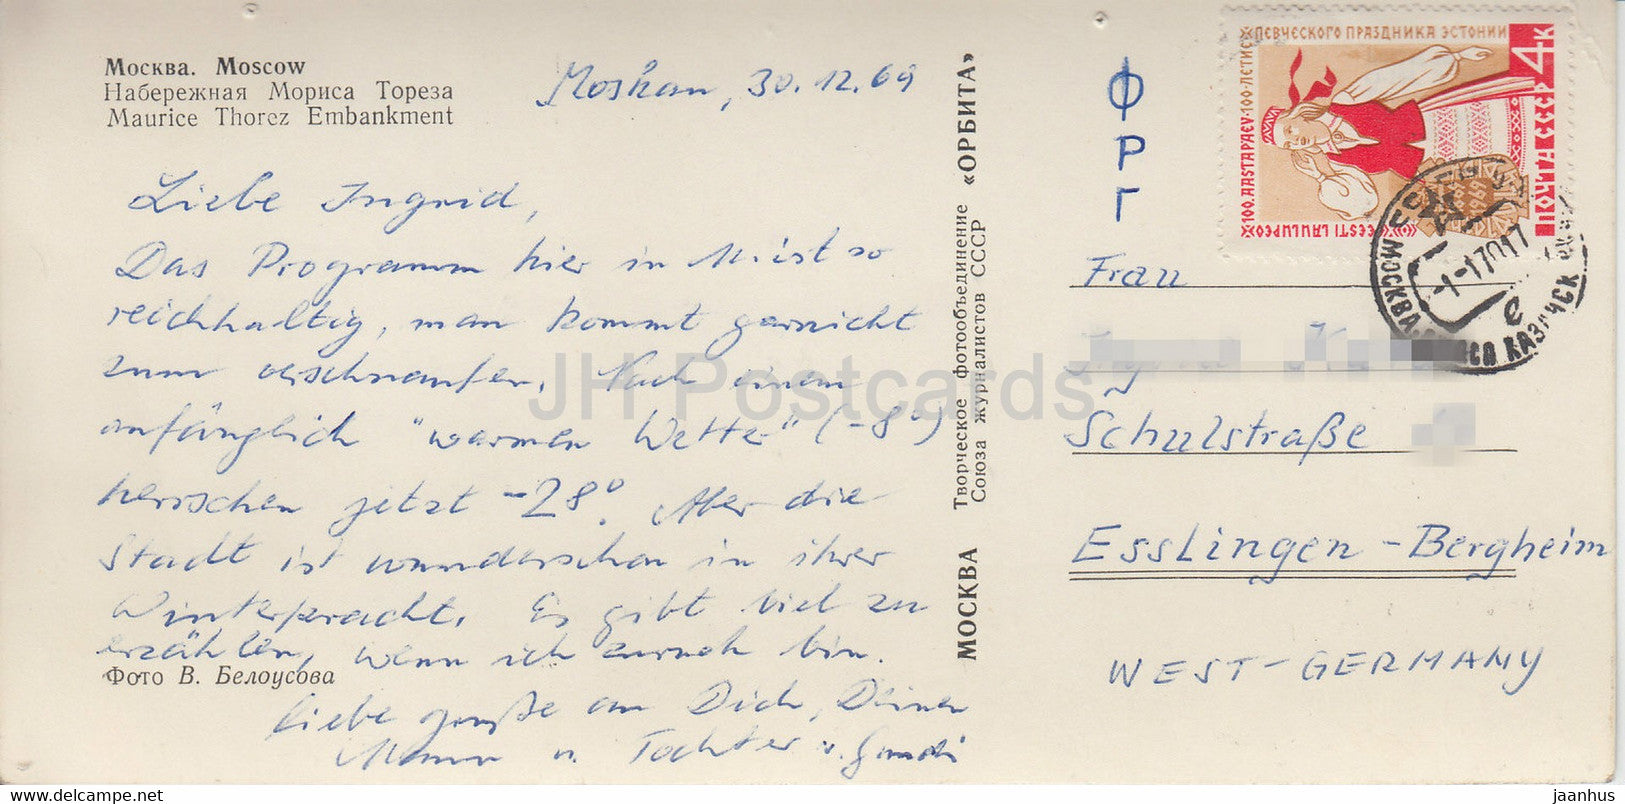 Москва. Moscow
Набережная Мориса Тореза
Maurice Thorez Embankment
Moskau, 30.12.69
Liebe Ingrid,
Das Programm hier in M. ist so
reichhaltig, man kommt garnicht
zum verschnaufen. Nach einem
anfänglich "warmen Wetter" (-8°)
herrschen jetzt -28°. Aber die
Stadt ist wunderschön in ihrer
Winterpracht. Es gibt viel zu
erzählen, wenn ich zurück bin.
Фото В. Белоусова
Liebe Grüße an Dich, Deinen
Mann u. Tochter v.
МОСКВА Творческое фотообъединение «ОРБИТА»
Союза журналистов СССР
ФРГ
100 ЛЕТИЕ ПЕВЧЕСКОГО ПРАЗДНИКА ЭСТОНИИ
100. AASTAPÄEV
EESTI LAULUPEO
1869 1969
ПОЧТА СССР 4К
МОСКВА
-1-17017
е
Frau
Schulstraße
Esslingen-Bergheim
WEST-GERMANY
JH Postcards
www.delcampe.net
jaanhus